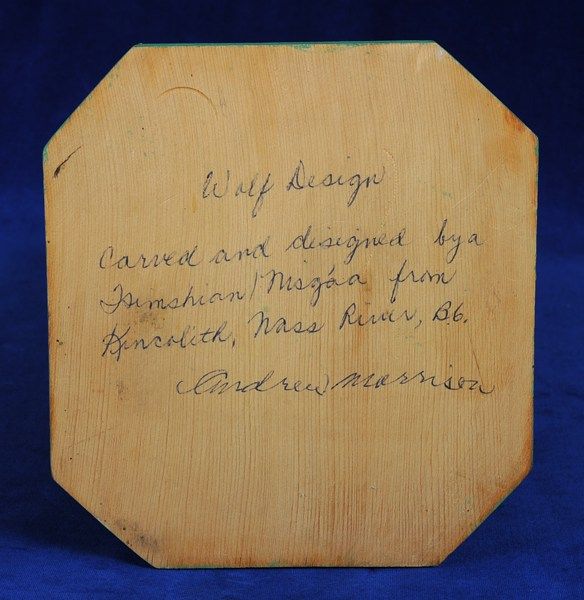 Wolf Design
Carved and disigned by a
Tsimshian/Nisga'a from
Kincolith, Nass River, B.C.
Andrew Morrison